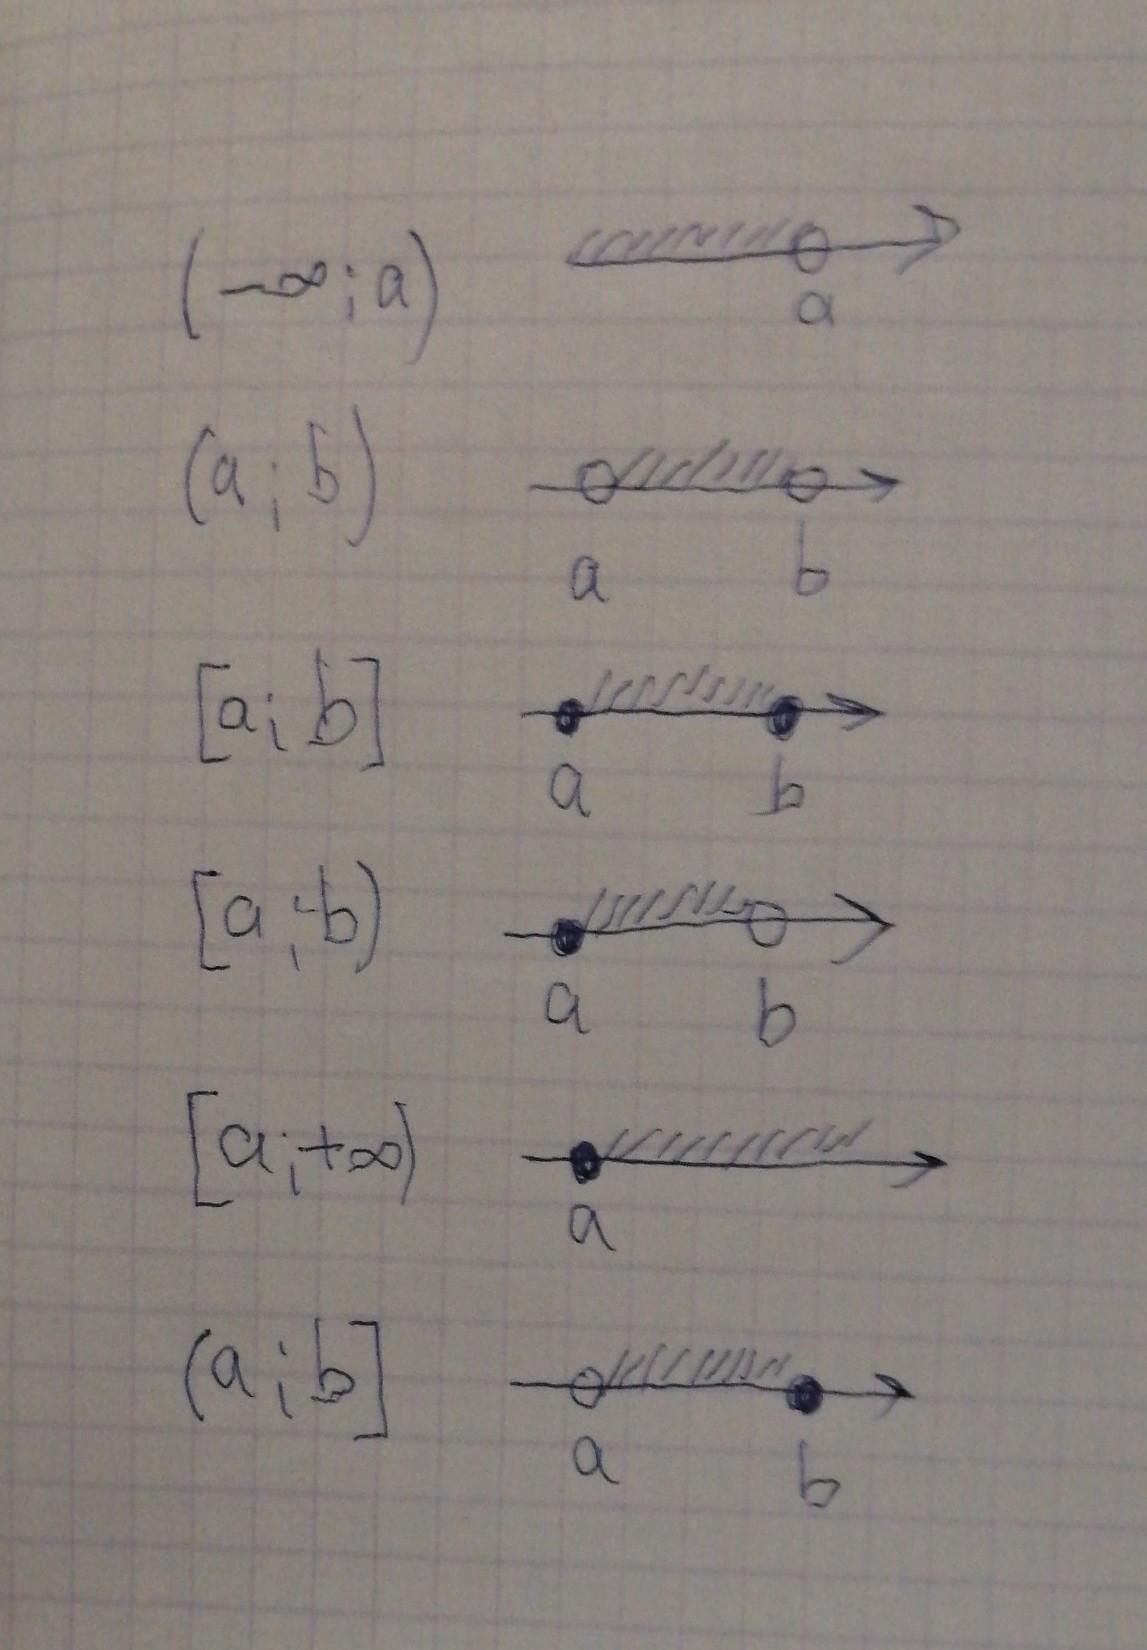 (-∞; a)
a
(a; b)
a b
[a; b]
a b
[a; b)
a b
[a; +∞)
a
(a; b]
a b